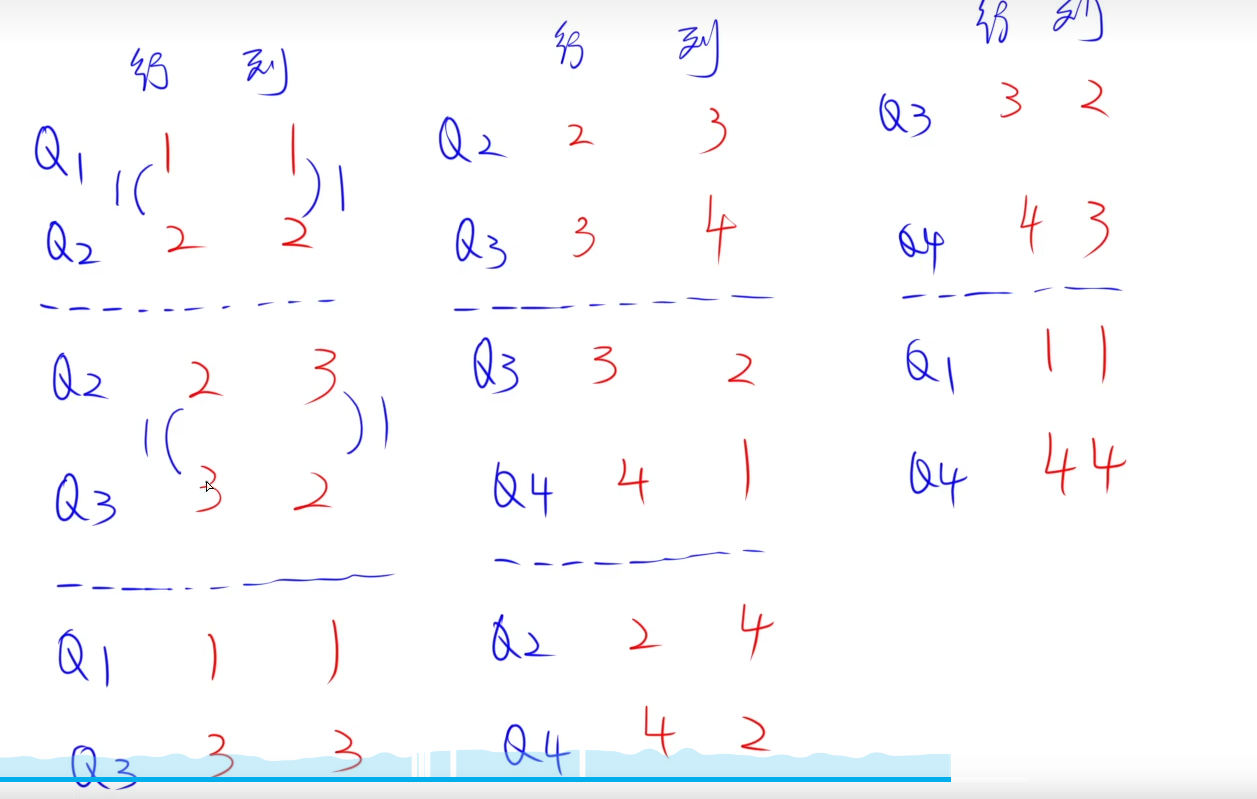 约 到
Q1 1 1
1( )1
Q2 2 2
Q2 2 3
1( )1
Q3 3 2
Q1 1 1
Q3 3 3
约 到
Q2 2 3
Q3 3 4
Q3 3 2
Q4 4 1
Q2 2 4
Q4 4 2
约 到
Q3 3 2
Q4 4 3
Q1 1 1
Q4 4 4